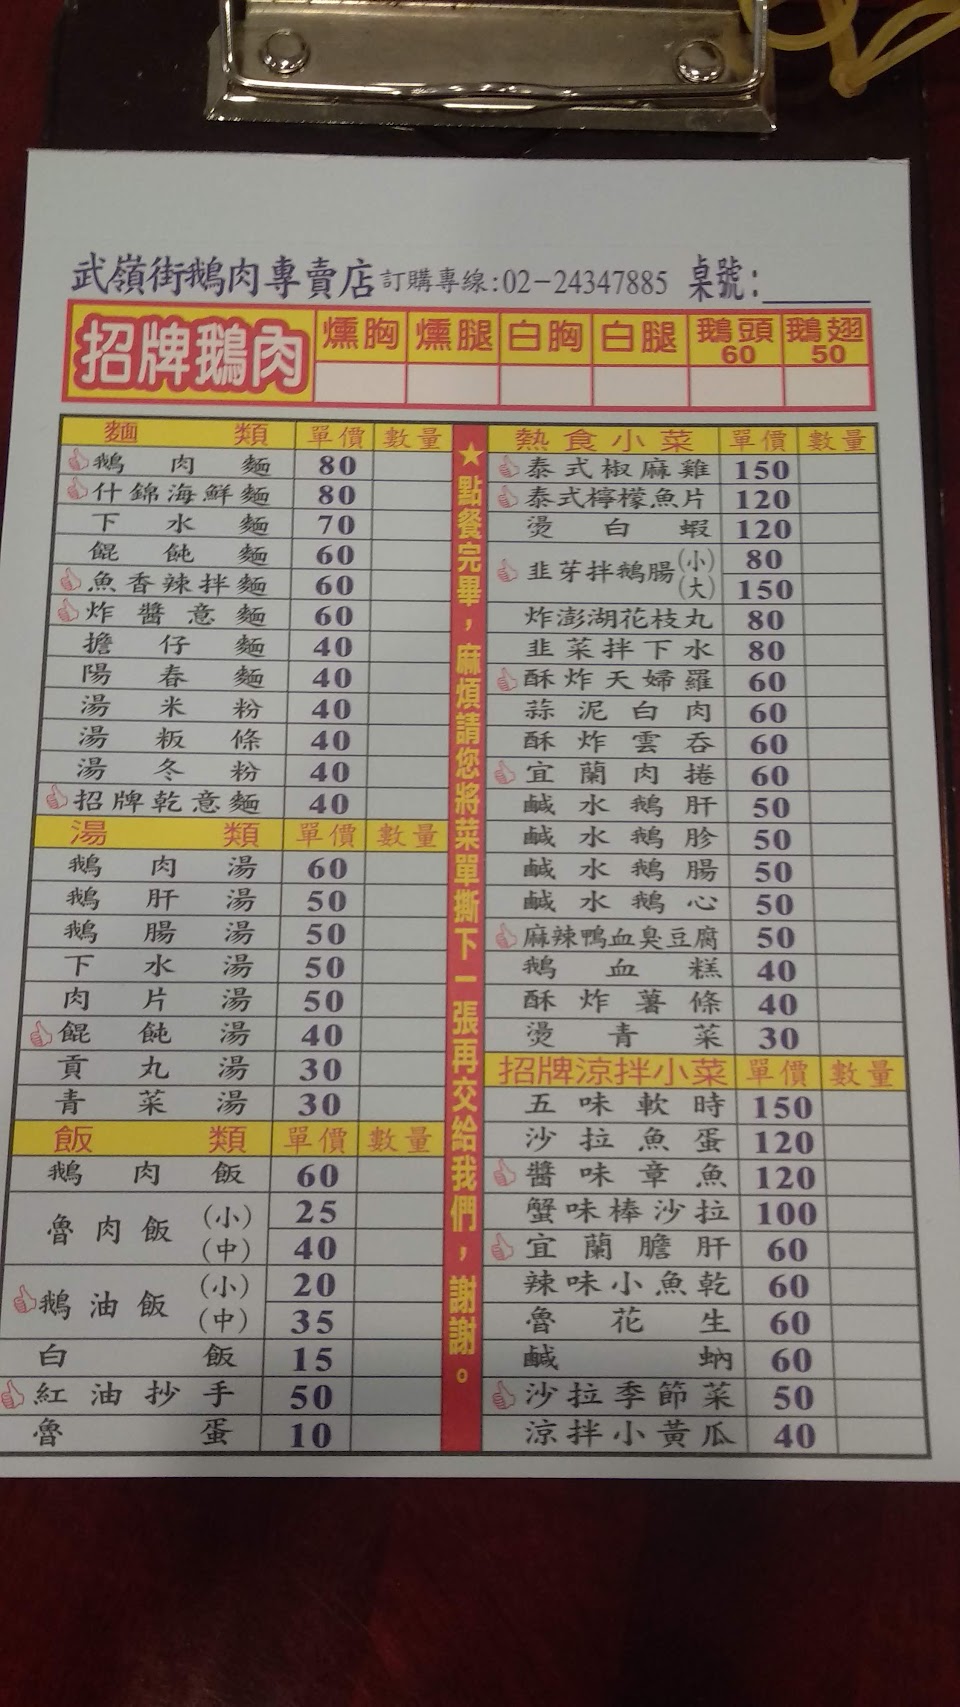 武嶺街鵝肉專賣店 訂購專線:02-24347885 桌號:
招牌鵝肉 燻胸 燻腿 白胸 白腿 鵝頭 60 鵝翅 50
麵類 單價 數量
鵝肉麵 80
什錦海鮮麵 80
下水麵 70
餛飩麵 60
魚香辣拌麵 60
炸醬意麵 60
擔仔麵 40
陽春麵 40
湯米粉 40
湯粄條 40
湯冬粉 40
招牌乾意麵 40
湯類 單價 數量
鵝肉湯 60
鵝肝湯 50
鵝腸湯 50
下水湯 50
肉片湯 50
餛飩湯 40
貢丸湯 30
青菜湯 30
飯類 單價 數量
鵝肉飯 60
魯肉飯 (小) 25
(中) 40
鵝油飯 (小) 20
(中) 35
白飯 15
紅油抄手 50
魯蛋 10
★點餐完畢，麻煩請您將菜單撕下一張再交給我們，謝謝。
熱食小菜 單價 數量
泰式椒麻雞 150
泰式檸檬魚片 120
燙白蝦 120
韭芽拌鵝腸 (小) 80
(大) 150
炸澎湖花枝丸 80
韭菜拌下水 80
酥炸天婦羅 60
蒜泥白肉 60
酥炸雲吞 60
宜蘭肉捲 60
鹹水鵝肝 50
鹹水鵝胗 50
鹹水鵝腸 50
鹹水鵝心 50
麻辣鴨血臭豆腐 50
鵝血糕 40
酥炸薯條 40
燙青菜 30
招牌涼拌小菜 單價 數量
五味軟時 150
沙拉魚蛋 120
醬味章魚 120
蟹味棒沙拉 100
宜蘭膽肝 60
辣味小魚乾 60
魯花生 60
鹹蚋 60
沙拉季節菜 50
涼拌小黃瓜 40